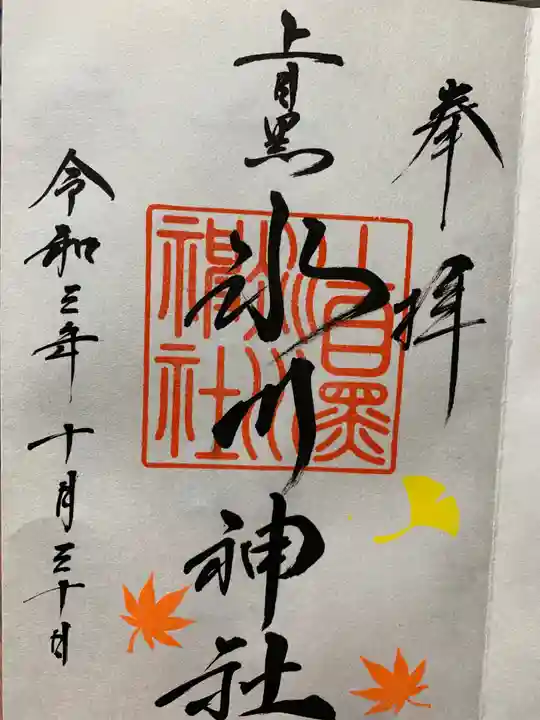 奉拝
上目黒
氷川神社
上目黒
氷川
神社
令和三年十月三十日